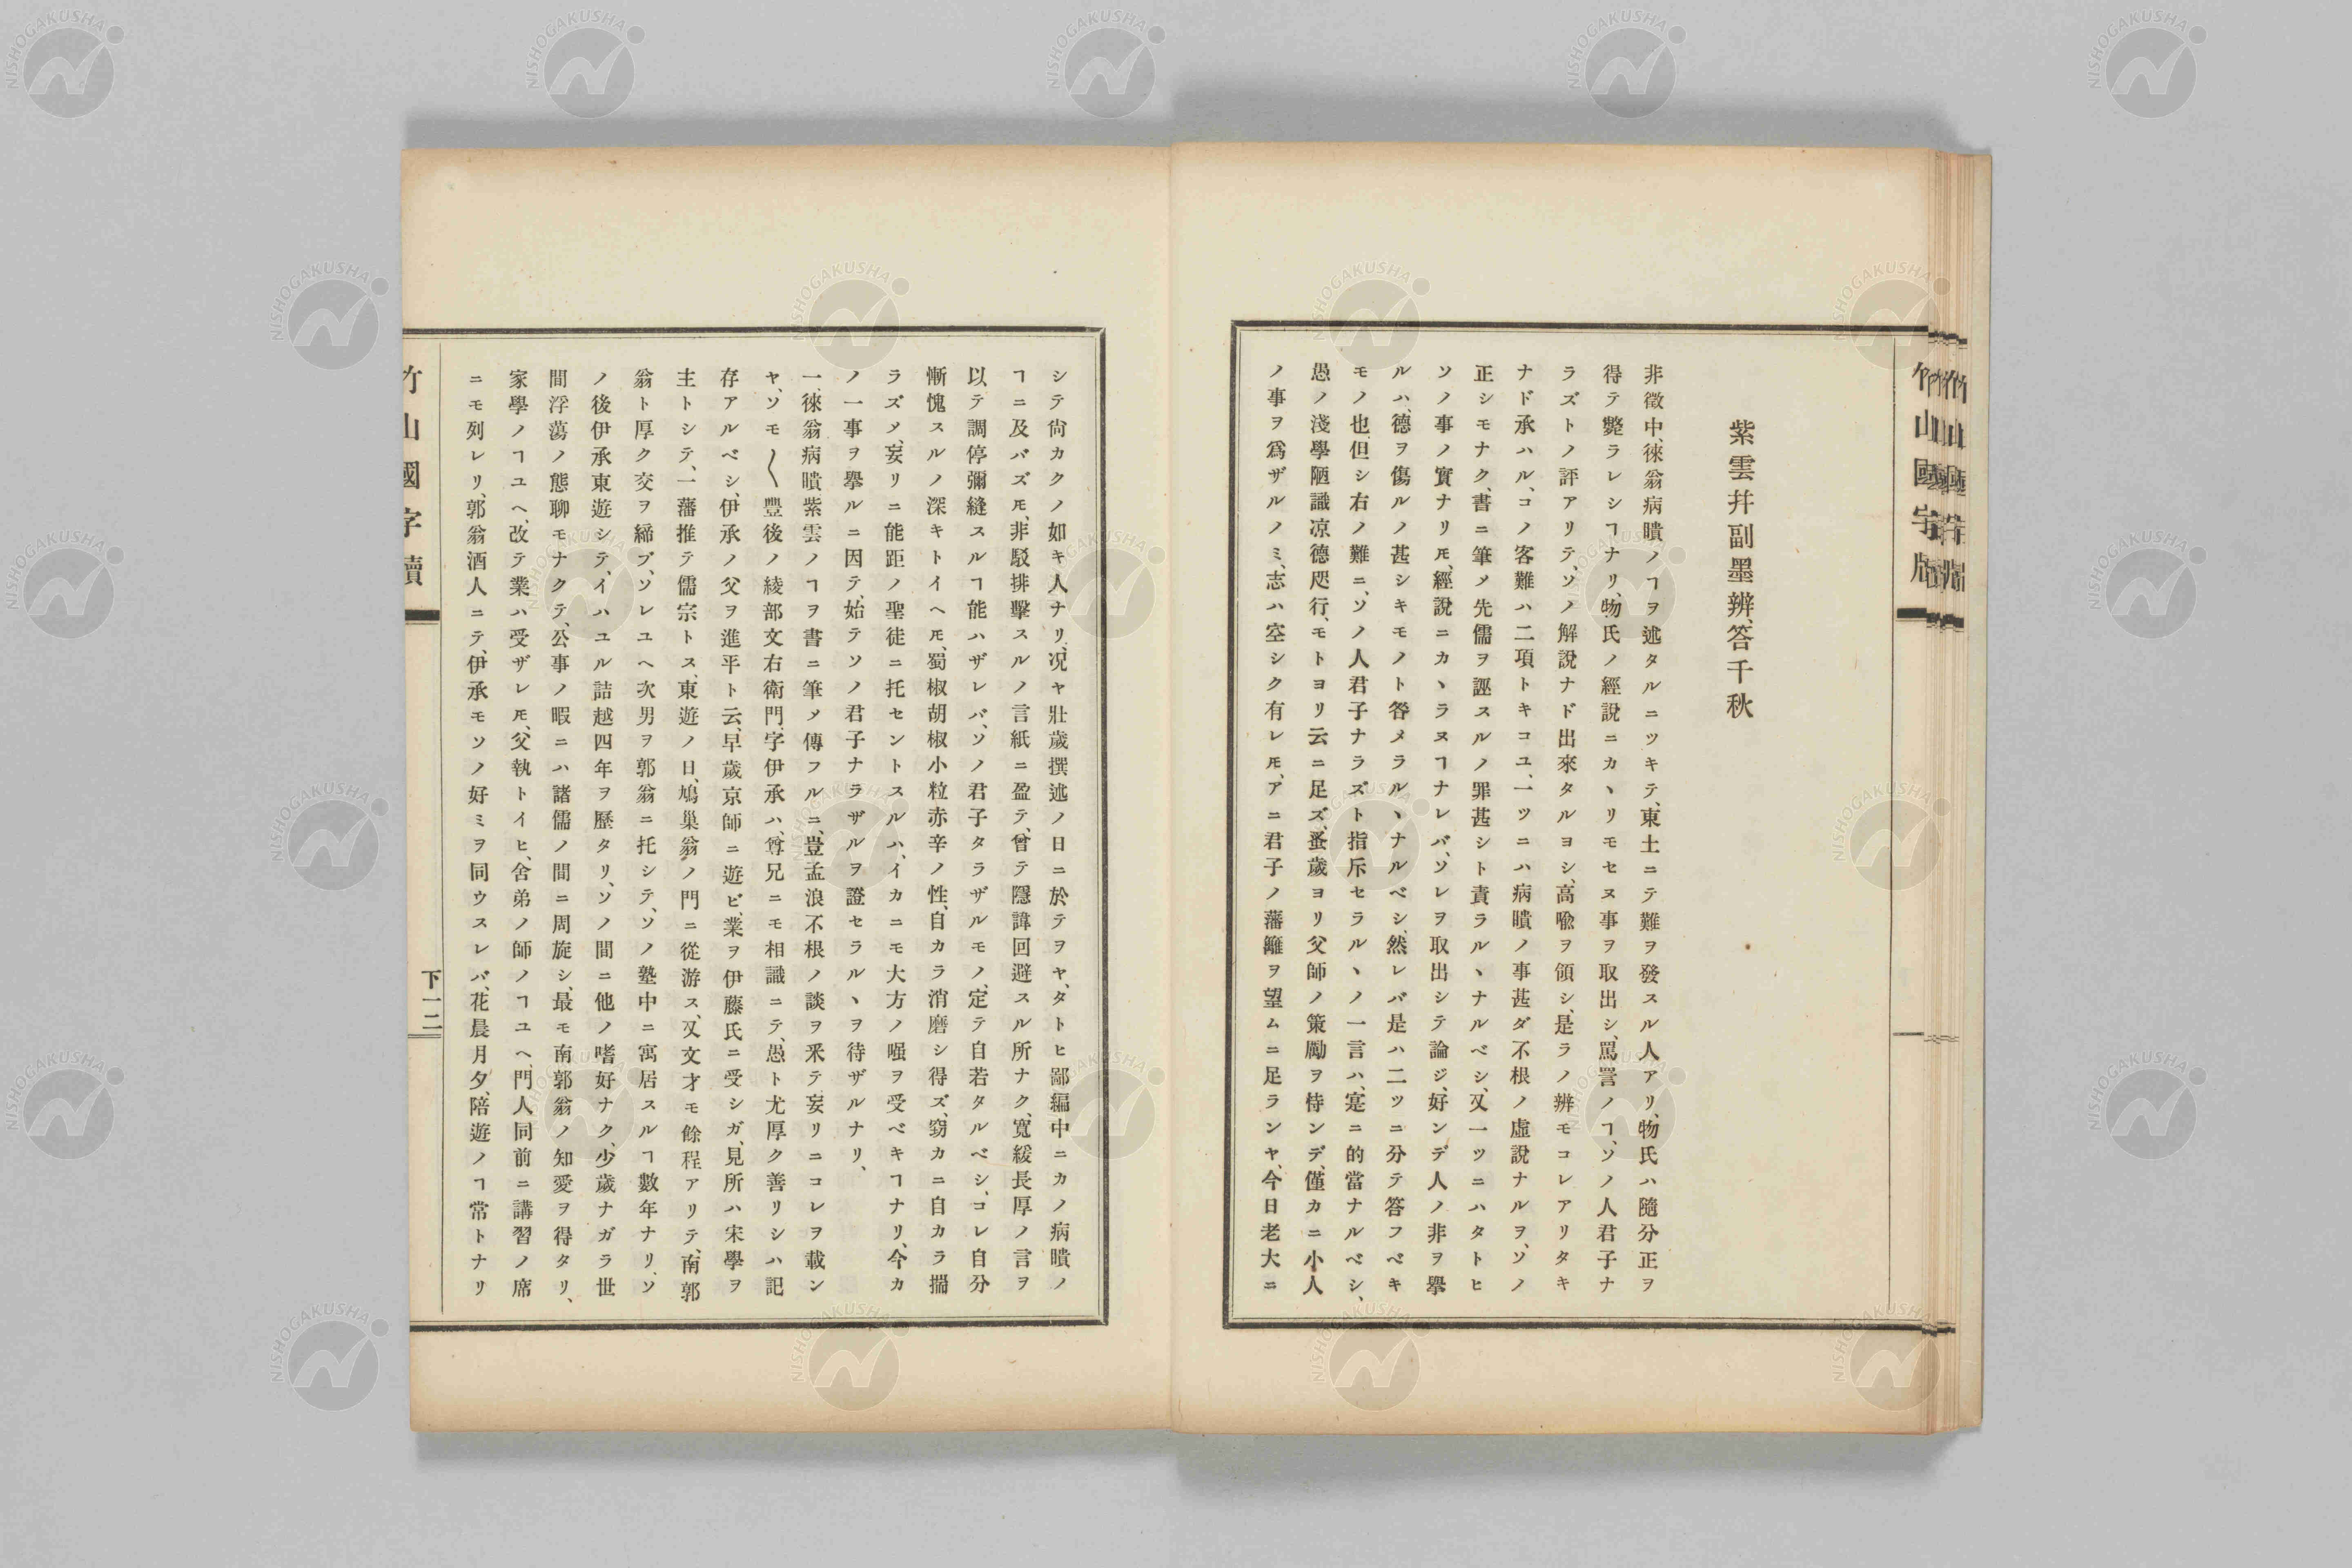 紫雲幷副墨辨、答千秋
非徵中、徠翁病聵ノヿヲ述タルニツキテ、東土ニテ難ヲ發スル人アリ、物氏ハ隨分正ヲ
得テ斃ラレシヿナリ、物氏ノ經說ニカヽリモセヌ事ヲ取出シ、罵詈ノヿ、ソノ人君子ナ
ラズトノ評アリテ、ソノ解說ナド出來タルヨシ、高喩ヲ領シ、是ラノ辨モコレアリタキ
ナド承ハル、コノ客難ハ二項トキコユ、一ツニハ病聵ノ事甚ダ不根ノ虛說ナルヲ、ソノ
正シモナク、書ニ筆〆先儒ヲ誣スルノ罪甚シト責ラルヽナルベシ、又一ツニハタトヒ
ソノ事ノ實ナリ𪜈、經說ニカヽラヌヿナレバ、ソレヲ取出シテ論ジ、好ンデ人ノ非ヲ擧
ルハ、德ヲ傷ルノ甚シキモノト咎メラルヽナルベシ、然レバ是ハ二ツニ分テ答フベキ
モノ也、但シ右ノ難ニ、ソノ人君子ナラズト指斥セラルヽノ一言ハ、寔ニ的當ナルベシ、
愚ノ淺學陋識凉德咫行、モトヨリ云ニ足ズ、蚤歲ヨリ父師ノ策勵ヲ恃ンデ、僅カニ小人
ノ事ヲ爲ザルノミ、志ハ空シク有レ𪜈、アニ君子ノ藩籬ヲ望ムニ足ランヤ、今日老大ニ
シテ尙カクノ如キ人ナリ、况ヤ壯歲撰述ノ日ニ於テヲヤ、タトヒ鄙編中ニカノ病聵ノ
ヿニ及バズ𪜈、非駁排擊スルノ言紙ニ盈テ、曾テ隱諱回避スル所ナク、寬緩長厚ノ言ヲ
以テ調停彌縫スルヿ能ハザレバ、ソノ君子タラザルモノ、定テ自若タルベシ、コレ自分
慚愧スルノ深キトイヘ𪜈、蜀椒胡椒小粒赤辛ノ性、自カラ消磨シ得ズ、窃カニ自カラ揣
ラズ〆、妄リニ能距ノ聖徒ニ托セントスルハ、イカニモ大方ノ嗤ヲ受ベキヿナリ、今カ
ノ一事ヲ擧ルニ因テ、始テソノ君子ナラザルヲ證セラルヽヲ待ザルナリ、
一、徠翁病聵紫雲ノヿヲ書ニ筆〆傳フルニ、豈孟浪不根ノ談ヲ釆テ妄リニコレヲ載ン
ヤ、ソモ〳〵豐後ノ綾部文右衛門、字伊承ハ、尊兄ニモ相識ニテ、愚ト尤厚ク善リシハ記
存アルベシ、伊承ノ父ヲ進平ト云、早歲京師ニ遊ビ、業ヲ伊藤氏ニ受シガ、見所ハ宋學ヲ
主トシテ、一藩推テ儒宗トス、東遊ノ日、鳩巢翁ノ門ニ從游ス、又文才モ餘程アリテ、南郭
翁ト厚ク交ヲ締ブ、ソレユヘ次男ヲ郭翁ニ托シテ、ソノ塾中ニ寓居スルヿ數年ナリ、ソ
ノ後伊承東遊シテ、イハユル詰越四年ヲ歷タリ、ソノ間ニ他ノ嗜好ナク、少歲ナガラ世
間浮蕩ノ態聊モナクテ、公事ノ暇ニハ諸儒ノ間ニ周旋シ、最モ南郭翁ノ知愛ヲ得タリ、
家學ノヿユヘ、改テ業ハ受ザレ𪜈、父執トイヒ、舍弟ノ師ノヿユヘ門人同前ニ講習ノ席
ニモ列レリ、郭翁酒人ニテ、伊承モソノ好ミヲ同ウスレバ、花晨月夕、陪遊ノヿ常トナリ
竹山國字牘
下一二